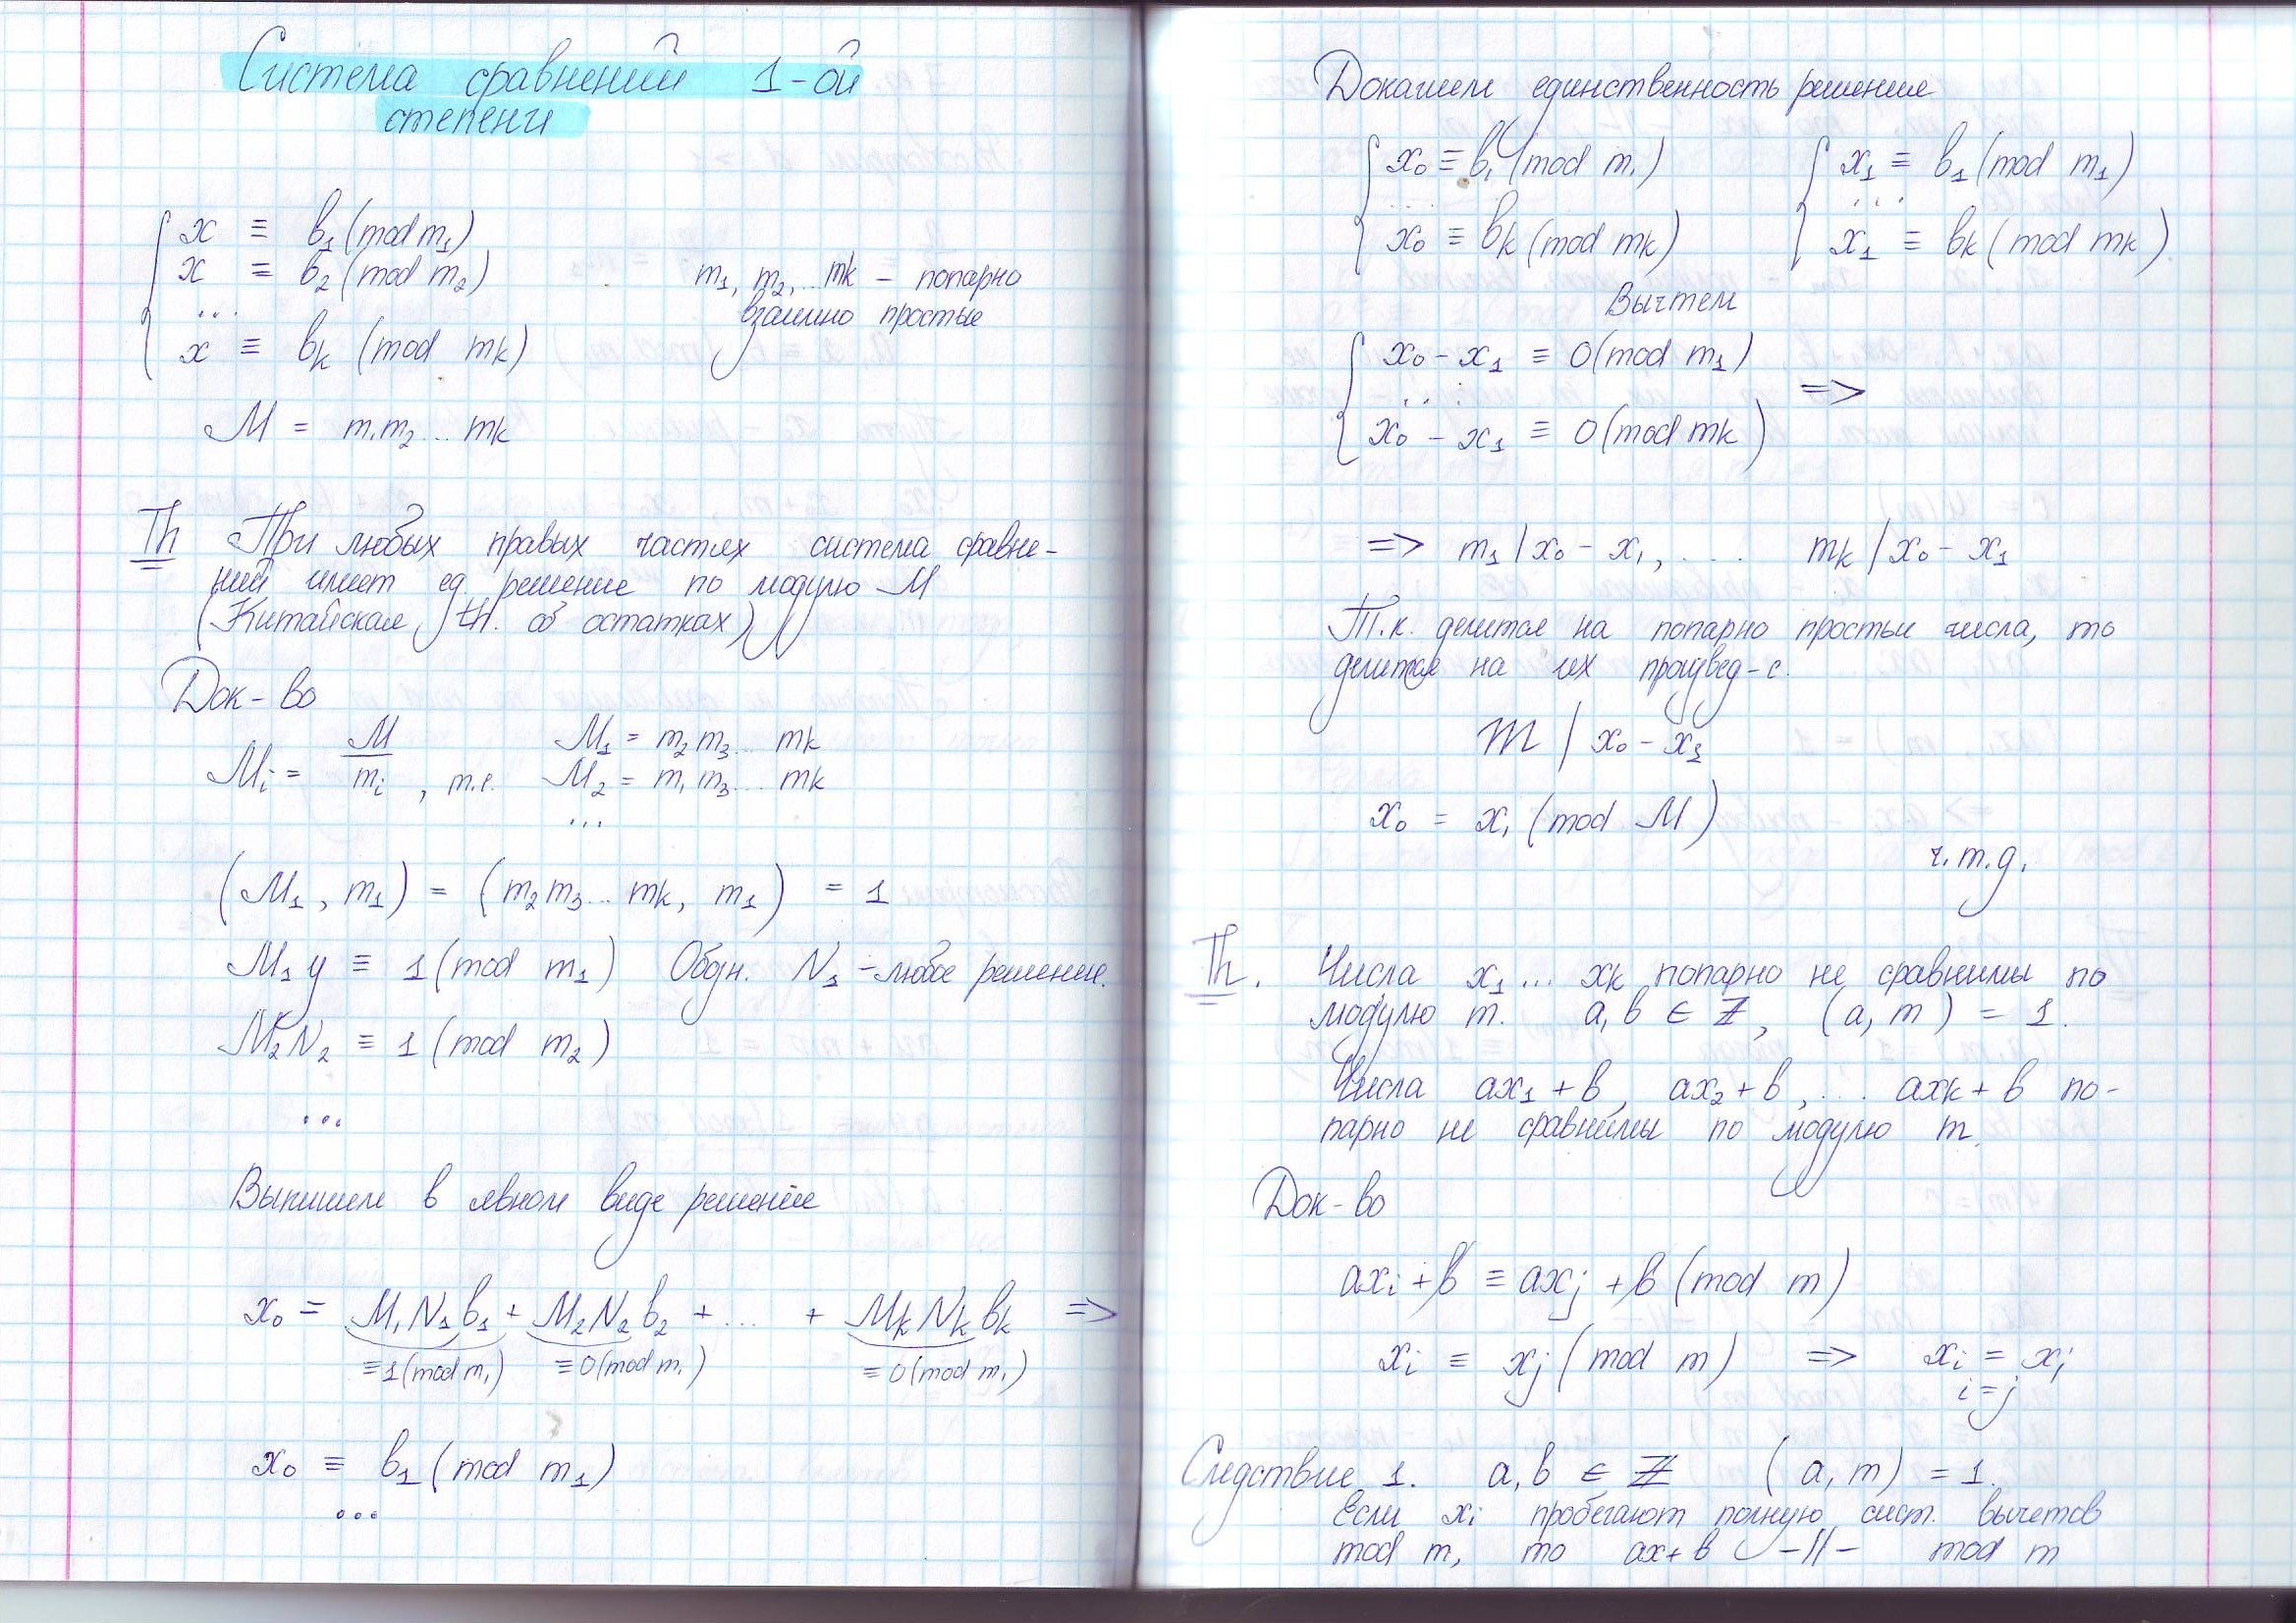 Система сравнений 1-ой
степени
x ≡ b₁ (mod m₁)
x ≡ b₂ (mod m₂)
...
x ≡ bₖ (mod mₖ)
m₁, m₂, ... mₖ – попарно
взаимно простые
M = m₁m₂ ... mₖ
Th При любых правых частях система сравне-
ний имеет ед. решение по модулю M
(Китайская th. об остатках)
Док-во
Mᵢ = M/mᵢ, т.е. M₁ = m₂m₃... mₖ
M₂ = m₁m₃... mₖ
...
(M₁, m₁) = (m₂m₃... mₖ, m₁) = 1
M₁y ≡ 1 (mod m₁) Обозн. N₁ – любое решение.
M₂N₂ ≡ 1 (mod m₂)
...
Выпишем в явном виде решение
x₀ = M₁N₁b₁ + M₂N₂b₂ + ... + MₖNₖbₖ =>
≡1(mod m₁) ≡0(mod m₁) ≡0(mod m₁)
x₀ ≡ b₁ (mod m₁)
...
Докажем единственность решения
x₀ ≡ b₁ (mod m₁) x₁ ≡ b₁ (mod m₁)
... ...
x₀ ≡ bₖ (mod mₖ) x₁ ≡ bₖ (mod mₖ)
Вычтем
x₀ - x₁ ≡ 0 (mod m₁)
... =>
x₀ - x₁ ≡ 0 (mod mₖ)
=> m₁ | x₀ - x₁, ... mₖ | x₀ - x₁
Т.к. делится на попарно простые числа, то
делится на их произвед-е.
m | x₀ - x₁
x₀ = x₁ (mod M)
ч.т.д.
Th. Числа x₁ ... xₖ попарно не сравнимы по
модулю m. a, b ∈ ℤ, (a, m) = 1.
Числа ax₁ + b, ax₂ + b, ... axₖ + b по-
парно не сравнимы по модулю m.
Док-во
axᵢ + b ≡ axⱼ + b (mod m)
xᵢ ≡ xⱼ (mod m) => xᵢ = xⱼ
i = j
Следствие 1. a, b ∈ ℤ (a, m) = 1.
Если xᵢ пробегают полную сист. вычетов
mod m, то ax + b –//– mod m